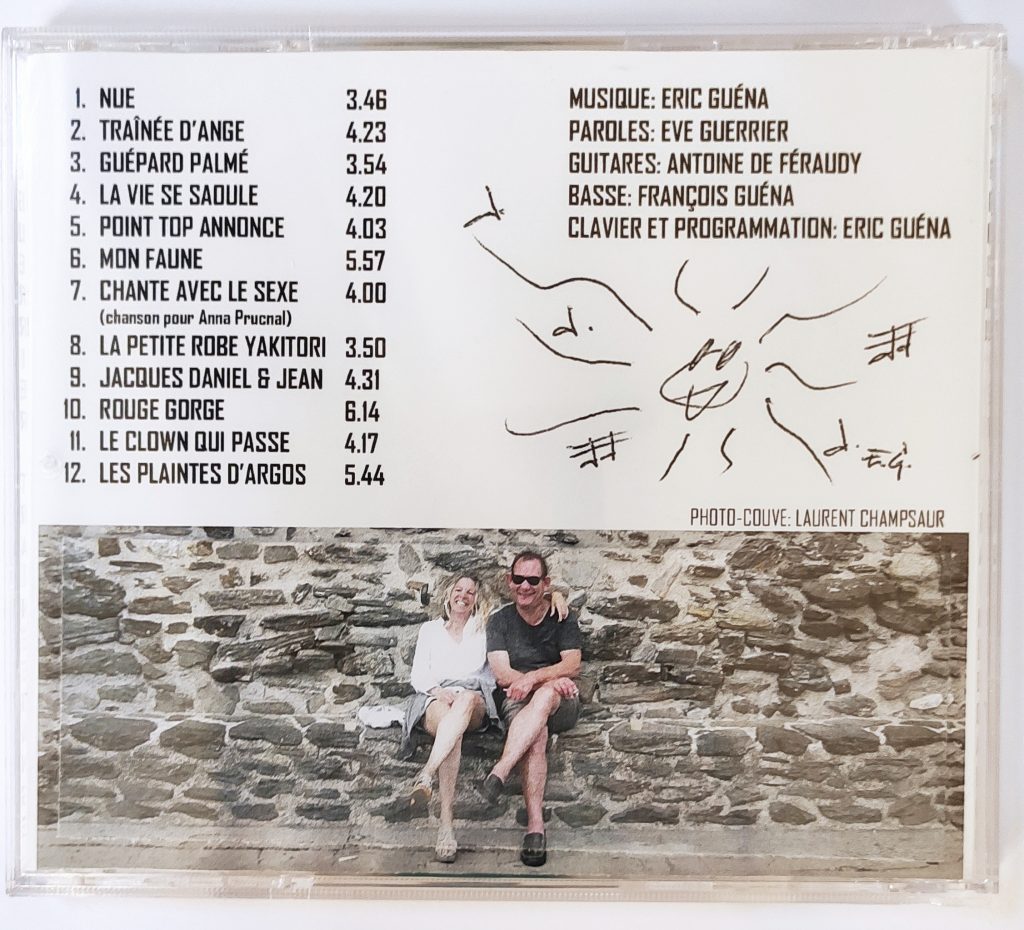 1. NUE 3.46
2. TRAÎNÉE D'ANGE 4.23
3. GUÉPARD PALMÉ 3.54
4. LA VIE SE SAOULE 4.20
5. POINT TOP ANNONCE 4.03
6. MON FAUNE 5.57
7. CHANTE AVEC LE SEXE 4.00
(chanson pour Anna Prucnal)
8. LA PETITE ROBE YAKITORI 3.50
9. JACQUES DANIEL & JEAN 4.31
10. ROUGE GORGE 6.14
11. LE CLOWN QUI PASSE 4.17
12. LES PLAINTES D'ARGOS 5.44
MUSIQUE: ERIC GUÉNA
PAROLES: EVE GUERRIER
GUITARES: ANTOINE DE FÉRAUDY
BASSE: FRANÇOIS GUÉNA
CLAVIER ET PROGRAMMATION: ERIC GUÉNA
E.G.
PHOTO-COUVE: LAURENT CHAMPSAUR